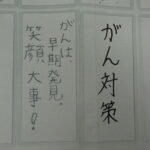 がん対策
がんは、
早期発見、
笑顔大事。